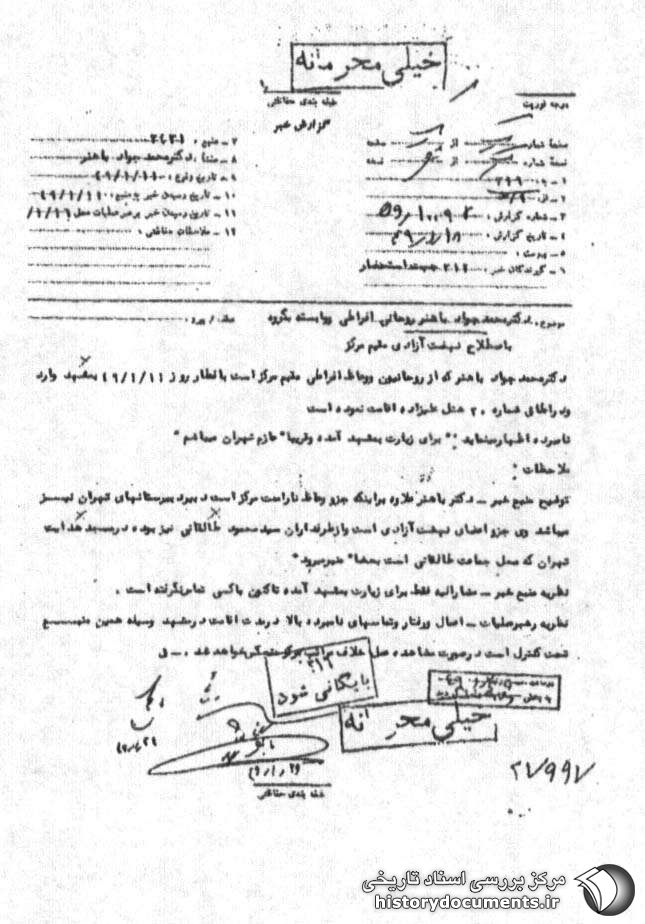 خیلی محرمانه
طبقه بندی حفاظتی
درجه فوریت
گزارش خبر
صفحه شماره از صفحه
نسخه شماره از نسخه
۱ - به
۲ - از
۳ - شماره گزارش :
۴ - تاریخ گزارش :
۵ - پیوست :
۶ - گیرندگان خبر : ۳۱۲ جهت استحضار
۷ - منبع :
۸ - منشأ : دکتر محمد جواد باهنر
۹ - تاریخ وقوع : ۴۹/۱/۱۱
۱۰ - تاریخ رسیدن خبر به منبع : ۴۹/۱/۱۱
۱۱ - تاریخ رسیدن خبر به رهبر عملیات محل
۱۲ - ملاحظات حفاظتی :
موضوع : دکتر محمد جواد باهنر روحانی افراطی ووابسته بگروه
باصطلاح نهضت آزادی مقیم مرکز
دکتر محمد جواد باهنر که از روحانیون ووعاظ افراطی مقیم مرکز است با قطار روز ۴۹/۱/۱۱ بمشهد وارد
ودراطاق شماره ۲۰ هتل علیزاده اقامت نموده است
نامبرده اظهار مینماید : " برای زیارت بمشهد آمده وقریبا" عازم تهران میباشم "
ملاحظات :
توضیح منبع خبر - دکتر باهنر علاوه براینکه جزو وعاظ ناراحت مرکز است دبیر دبیرستانهای تهران نیـــز
میباشد وی جزو اعضای نهضت آزادی است وازطرفداران سید محمود طالقانی نیز بوده درمسجد هدایت
تهران که محل جماعت طالقانی است بعضا" منبر میرود"
نظریه منبع خبر - مشارالیه فقط برای زیارت بمشهد آمده تاکنون باکسی تماس نگرفته است .
نظریه رهبر عملیات - اعمال ورفتار وتماسهای نامبرده بالا درمدت اقامت درمشهد وسیله همین منبـــع
تحت کنترل است درصورت مشاهده عمل خلاف مراتب بمرکز منعکس خواهد شد . - ف
۳۱۲
بایگانی شود
خیلی محرمانه
طبقه بندی حفاظتی
۲۷۹۹۷
مرکز بررسی اسناد تاریخی
historydocuments.ir